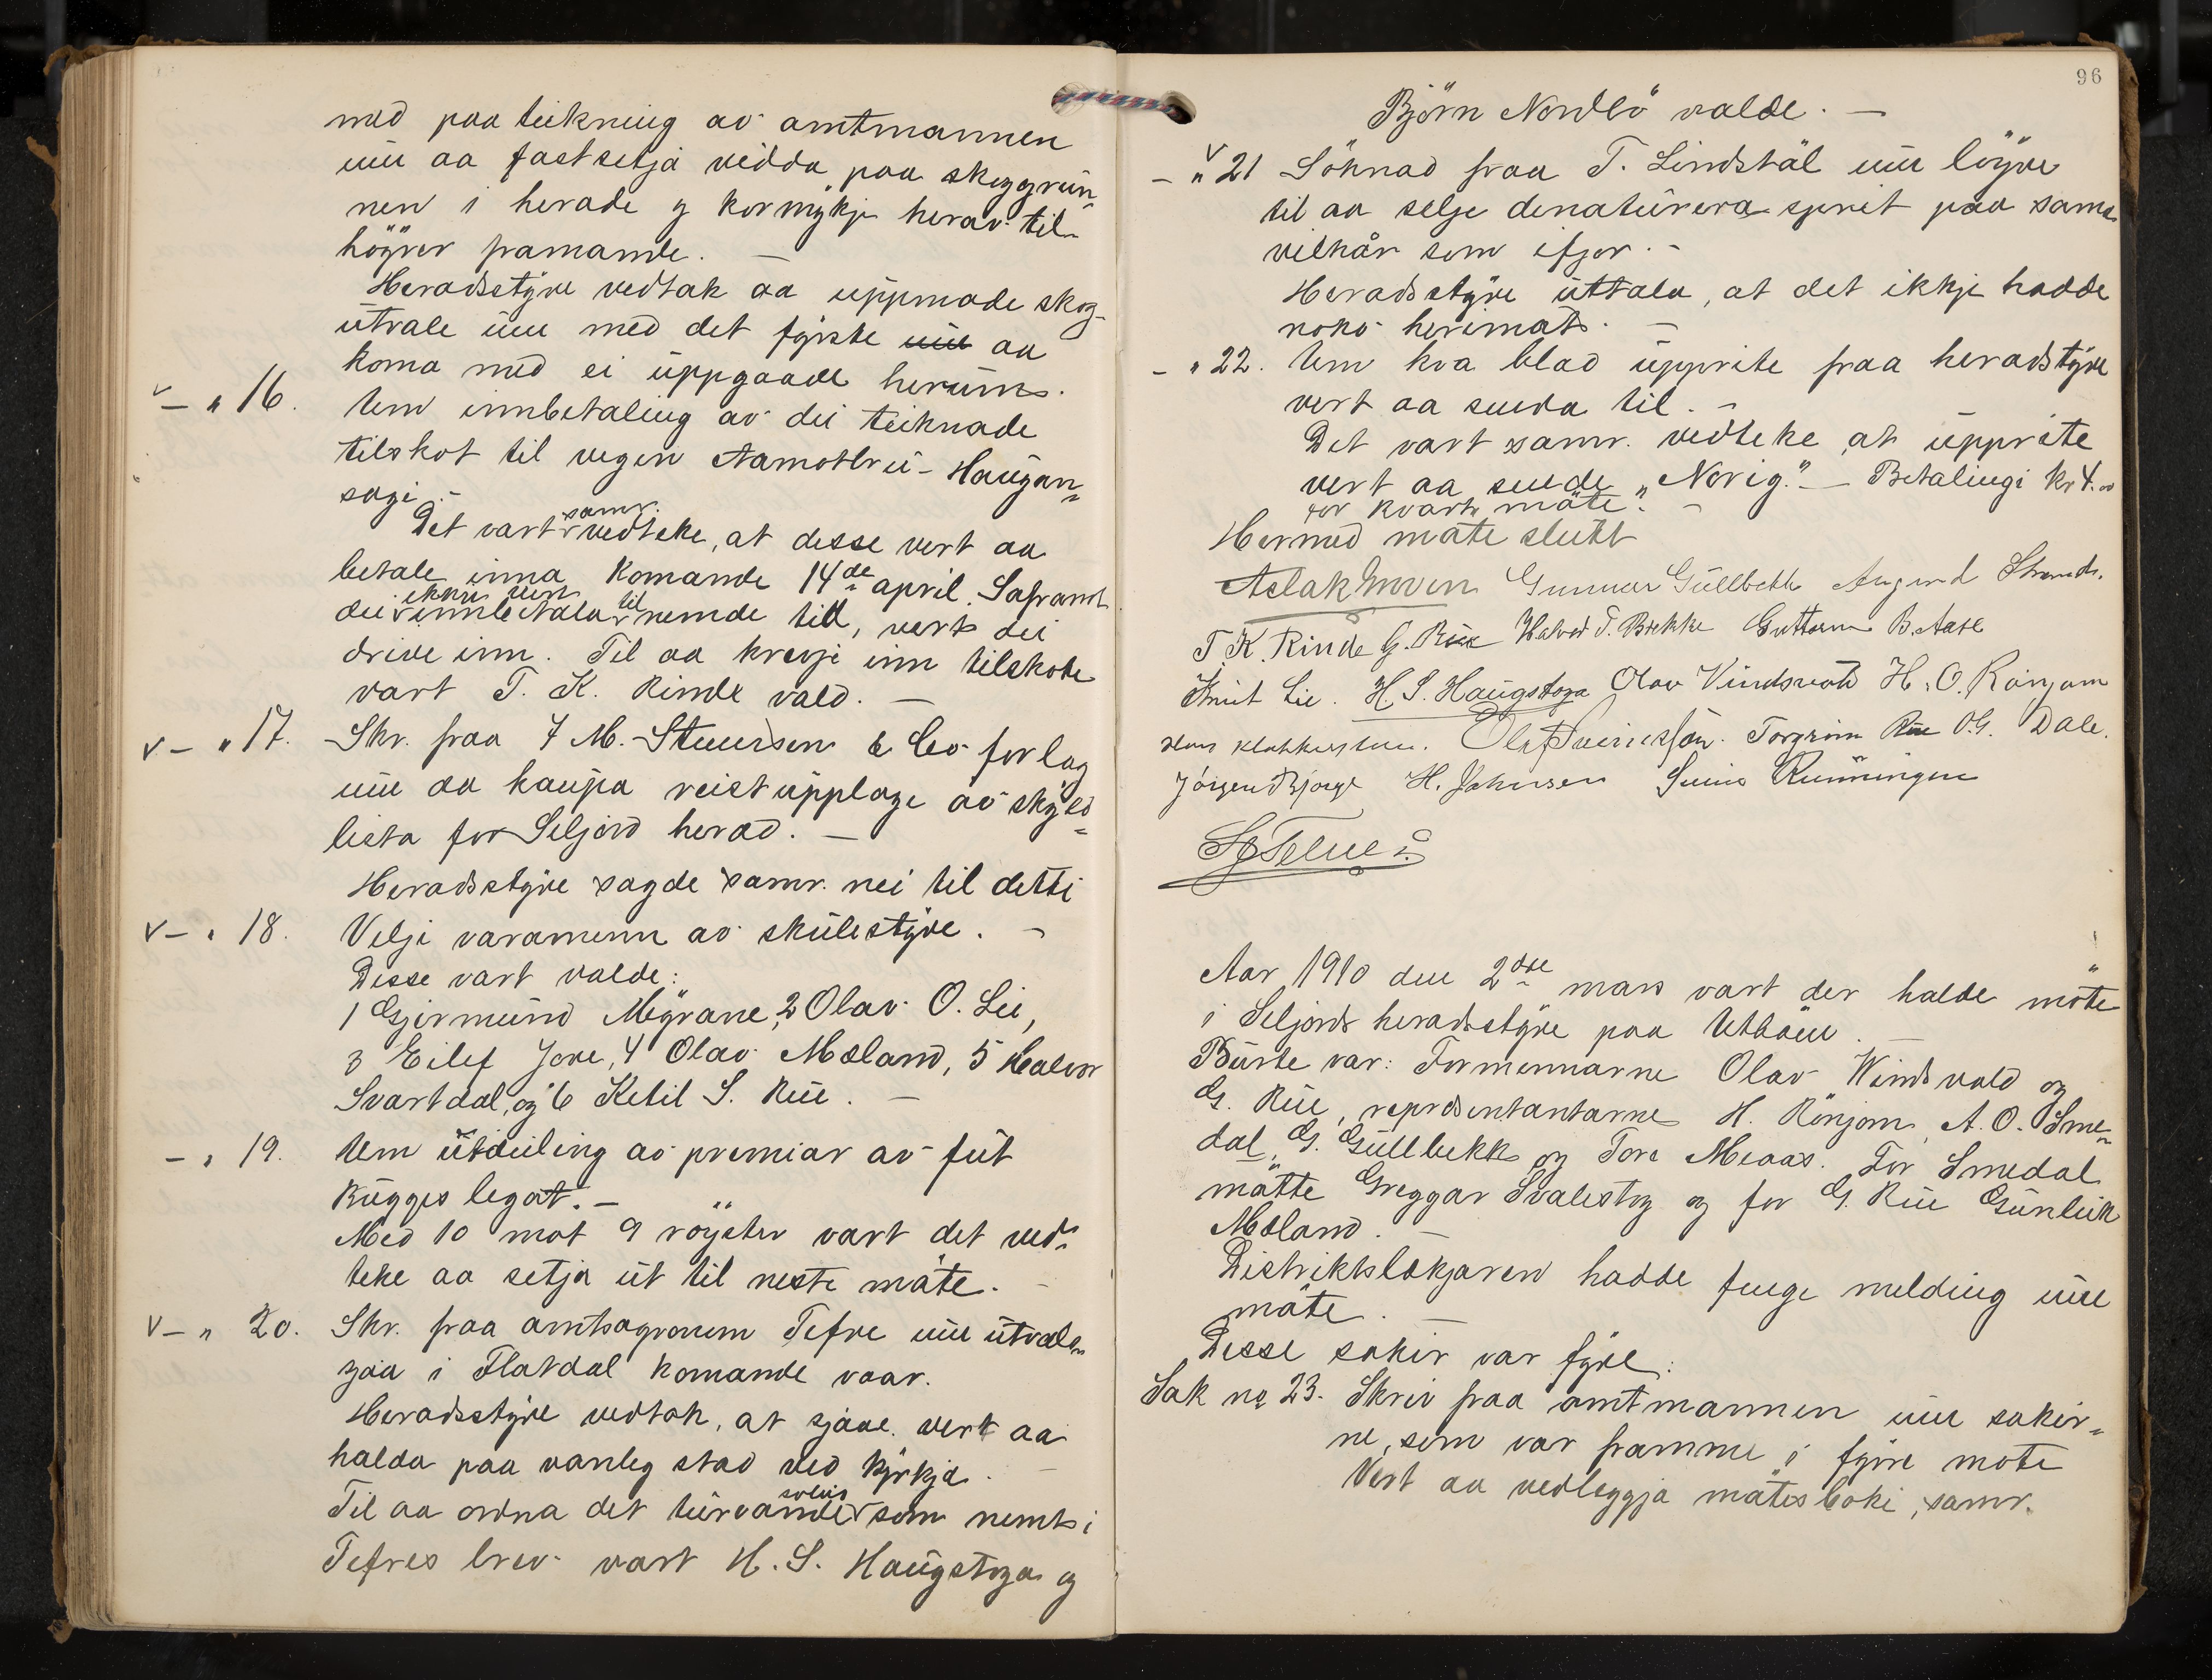 med paa teikning av amtmannen
um aa fastsetja vidda paa skoggrun-
nen i herade og kormykje herav til-
höyrer framande. —
Heradsstyre vedtak aa uppmode skog-
utvale um med det fyrste um aa
koma med ei uppgaade herum.
v — " 16. Um innbetaling av dei teiknade
tilskot til vegen Aamotbru - Haugan-
sagi. —
samr.
Det vart vedteke, at desse vert aa
betale inna komande 14de april. Saframt
ikkje vert til
dei innbetala nemde tid, verts dei
drive inn. Til aa krevje inn tilskote
vart T. K. Rinde vald. —
v — " 17. Skr. fraa F M. Steensen & Co forlag
um aa kaupa reistupplage av skyld-
lista for Seljord herad. —
Heradsstyre sagde samr. nei til detti
v — " 18. Velje varamenn av skulestyre. —
Desse vart valde:
1 Gjermund Mygrane, 2 Olav O. Lie,
3 Eilef Jore, 4 Olav Mæland, 5 Halvor
Svartdal, og 6 Ketil S. Rue. —
— " 19. Um utdeiling av premiar av fut
Rugges legat. —
Med 10 mot 9 röyster vart det ved-
teke aa setja ut til neste möte. —
v — " 20. Skr. fraa amtsagronom Tefre um utvals-
sjaa i Flatdal komande vaar.
Heradsstyre vedtok, at sjaae vert aa
halda paa vanleg stad ved kyrkja. —
Til aa ordna det turvande som nemt i
Tefres brev vart H. S. Haugstoga og
96
Björn Nordbö valde. —
v — " 21 Söknad fraa T. Lindstäl um löyve
til aa selje denaturera sprit paa same
vilkår som ifjor. —
Heradsstyre uttala, at det ikkje hadde
noko herimot. —
— " 22. Um kva blad upprite fraa heradstyre
vert aa senda til. —
Det vart samr. vedteke at upprite
vert aa sende "Norig." — Betalingi kr 4.00
for kvart möte. —
Hermed möte slutt
Aslak Moen Gunnar Gullbekk Augund Strand.
T. K. Rinde G. Rue Halvor T. Brekke Guttorm B. Aase
Knut Lie. H. S. Haugstoga Olav Vindsvold H. O. Rönjom
Olav Klokkarstuen. Olaf Sveinsson. Torgrim Rue O.G. Dale.
Jörgen Bjorge H. Johnsen Svein Runningen
Aar 1910 den 2dre mars vart der halde möte
i Seljords heradsstyre paa Utböen. —
Burte var: Formennarne Olav Windsvold og
G. Rue, representantarne H. Rönjom, A. O. Sme-
dal, G. Gullbekk og Tore Meaas. For Smedal
mötte Greggar Svalestog og for G. Rue Gunleik
Mæland. —
Distriktslækjaren hadde fenge melding um
möte. —
Desse sakir var fyre:
Sak no 23. Skriv fraa amtmannen um sakir-
ne, som var framme i fyrre möte
Vert aa vedleggja mötesboki, samr.